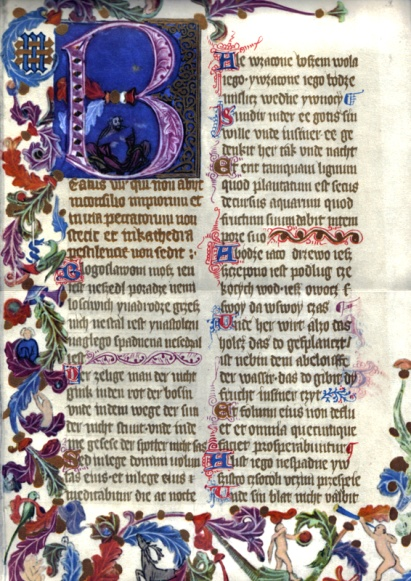 Beatus vir qui non abiit
in consilio impiorum et
in via peccatorum non
stetit et in kathedra
pestilencie non sedit :
Blogoslawoni mosz ien
iest ne szedl po radze nemi
losciwich y na drodze grzesz
nich ne stal iest y na stolcu
naglego spadnena ne sedzal
iest
Der zelige man der nicht
gink in den rot der bosin
vnde in dem wege der sun
der nicht stunt vnde in de
me gesese der spotter nicht sas
Sed in lege domini volun
tas eius et in lege eius
meditabitur die ac nocte
Ale w zacone boszem wola
iego y w zacone iego bodze
misslicz we dne y w nocy
Sundir in der ee gotis sin
wille vnde in siner ee ge
denkit her tak vnde nacht
Et erit tamquam lignum
quod plantatum est secus
decursus aquarum quod
fructum suum dabit in tem
pore suo
A bodze iaco drzewo iesz
sczepono iest podlug cze
kocych wod iesz owocz
swoy da w swoy czas
Vnde her wirt alzo das
holcz das do geflanczt
ist nebin dem abeloufte
der wassir das do gibit dy
frucht in siner czyt
Et folium eius non deflu
et et omnia quecunque
faciet prosperabuntur
A list iego ne spadne y w
szistko czsokoli vczini przespeie
Vnde sin blat nicht valbit